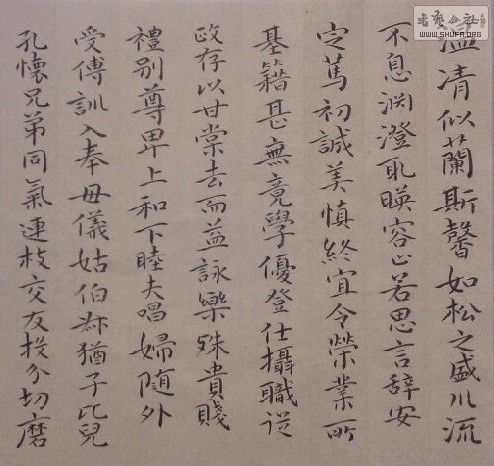 溫清似蘭斯馨如松之盛川流
不息渕澄取暎容止若思言辭安
定篤初誠美慎終宜令榮業所
基籍甚無竟學優登仕攝職從
政存以甘棠去而益詠樂殊貴賤
禮別尊卑上和下睦夫唱婦隨外
受傅訓入奉母儀姑伯叔猶子比兒
孔懷兄弟同氣連枝交友投分切磨
書藝公社
WWW.SHUFA.ORG